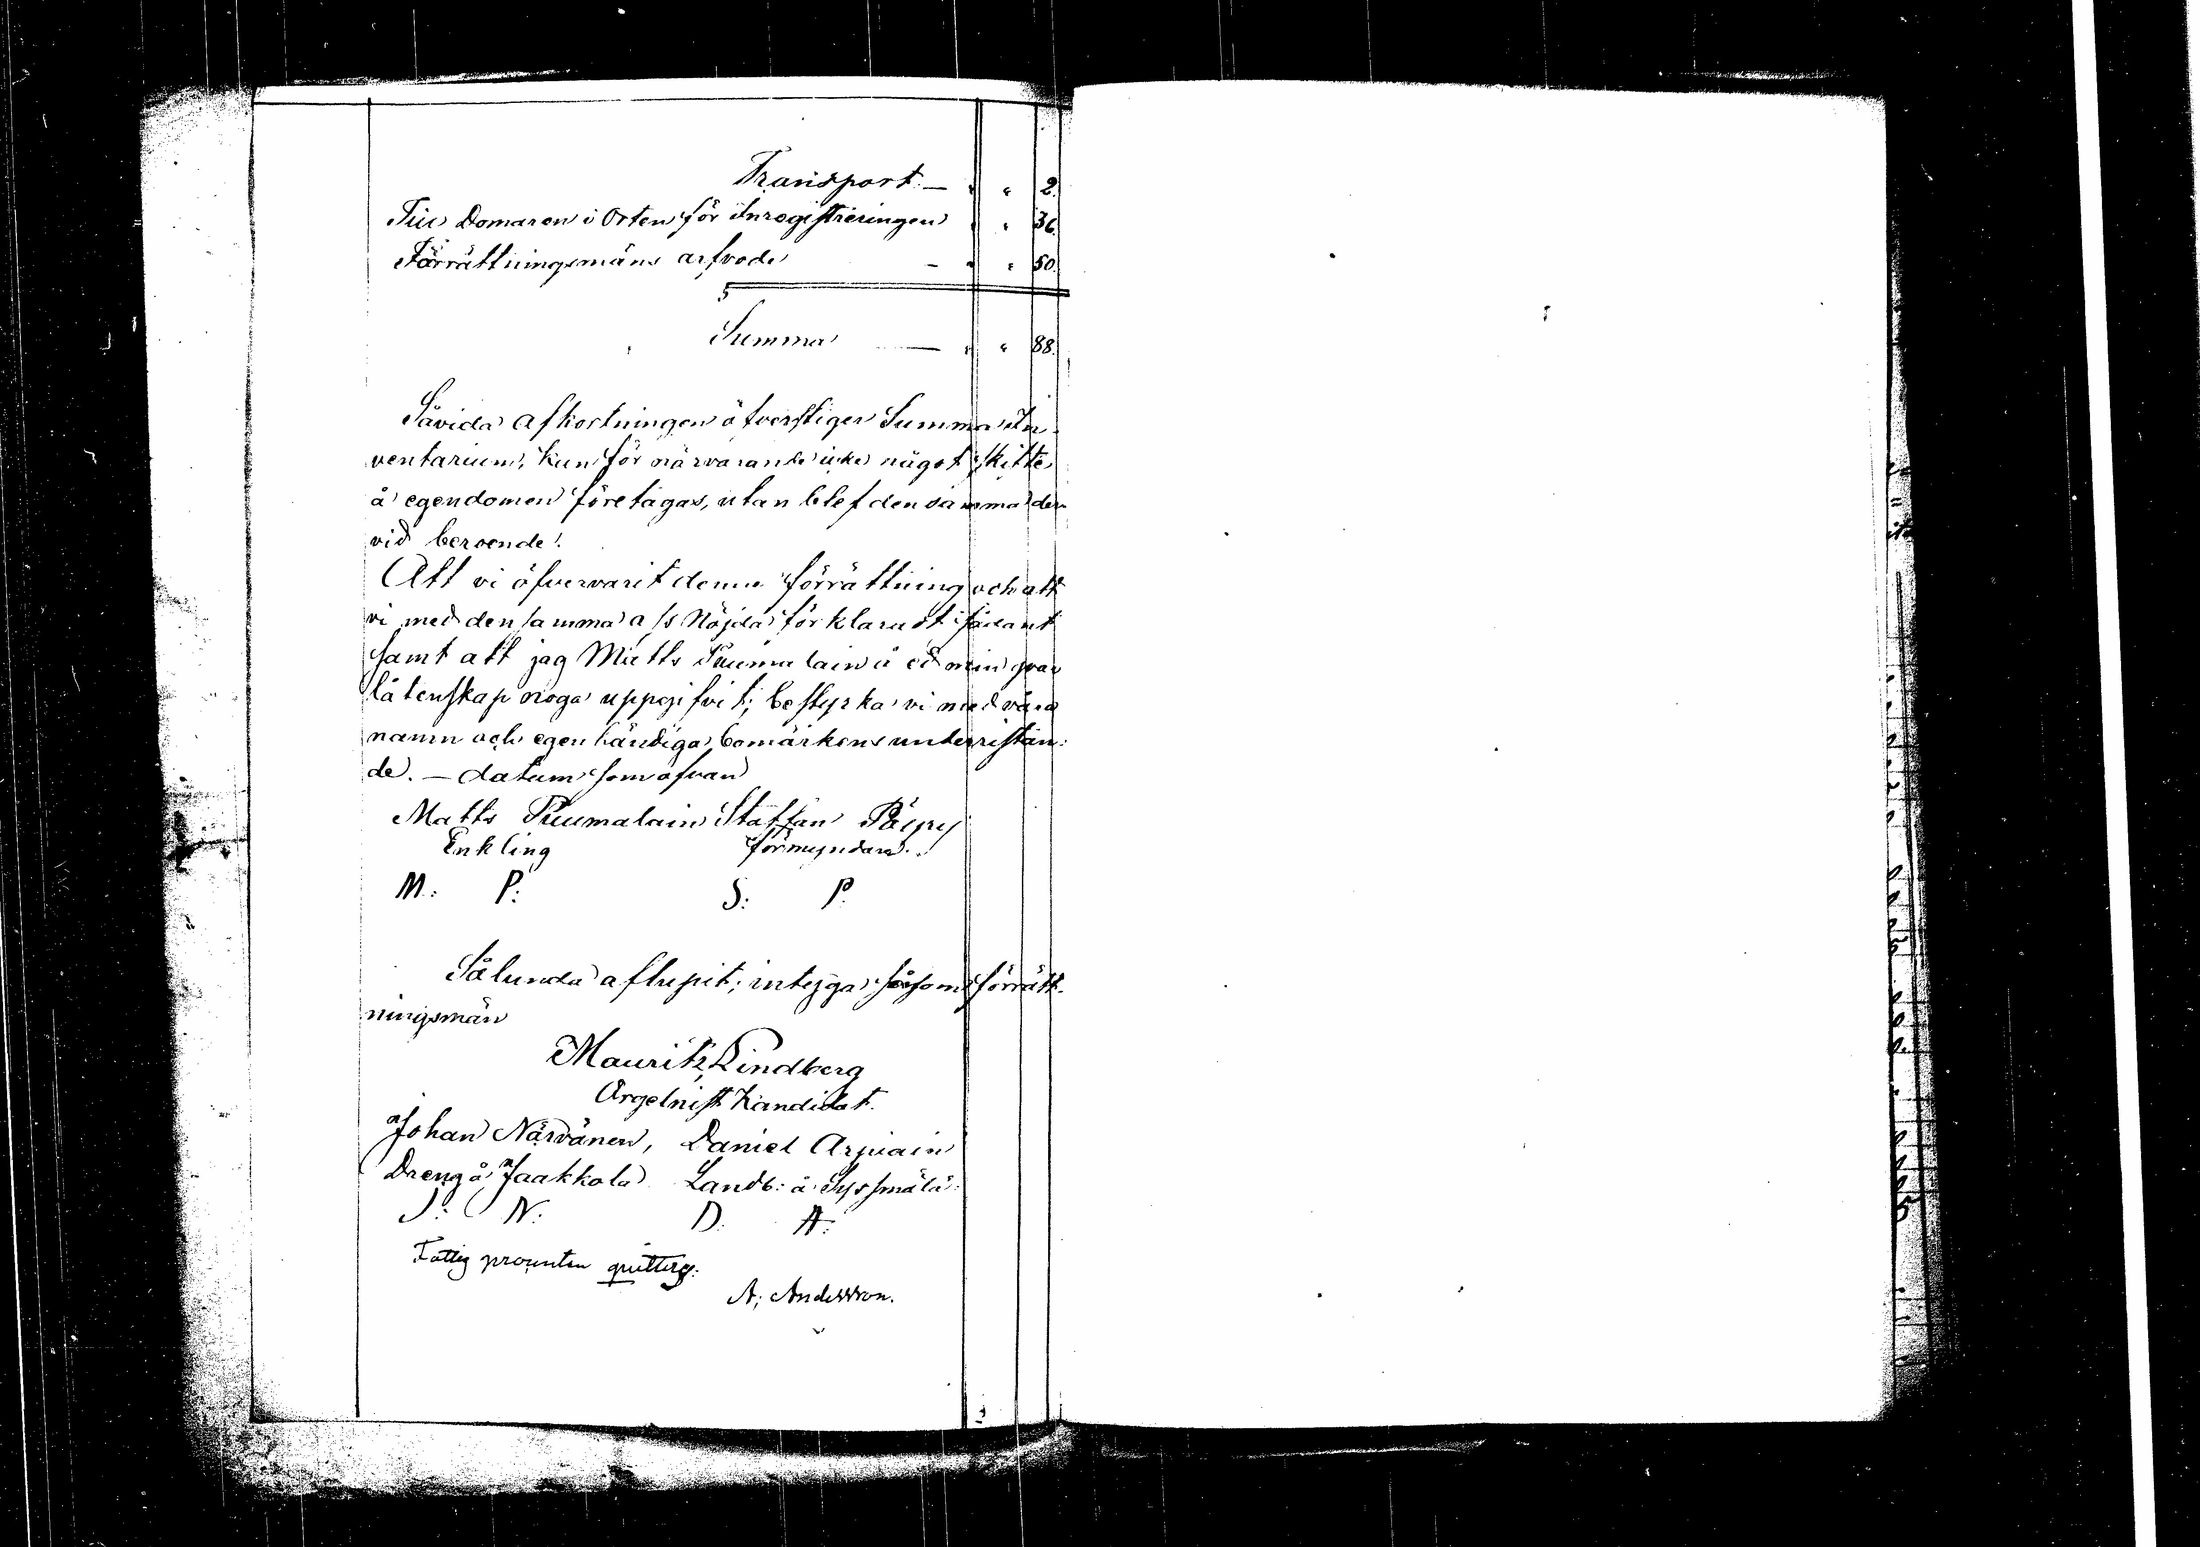 Transport. — " " 2.
Till Domaren i Orten för Inregistreringen " " 36.
Förrättningsmäns arfvode — " " 50.
Summa — " " 88.
Såvida afkortningen öfverstiger Summa In-
ventarium, kun för närvarande icke något skifte
å egendomen företagas, utan blef den samma der
vid beroende.
Att vi öfvervarit denna förrättning och att
vi med den samma oss Nöjda förklarat
samt att jag Matts Puumalain å ed min qvar
låtenskap noga uppgifvit; bestyrka vi med våra
namn och egenhändiga bomärkens underristan:
de. — datum som ofvan
Matts Puumalain Staffan Päpy
Enkling förmyndare.
M: P: S: P.
Sålunda aflupit; intyga såsom förrätt-
ningsmän
Mauritz Lindberg
Orgelnist Kandidat.
Johan Närvänen, Daniel Arpiain
Dreng å Jaakkola Landb: å Syssmälä:
J: N: D: A:
Fattig procenten qvitterg:
A; Andersson.